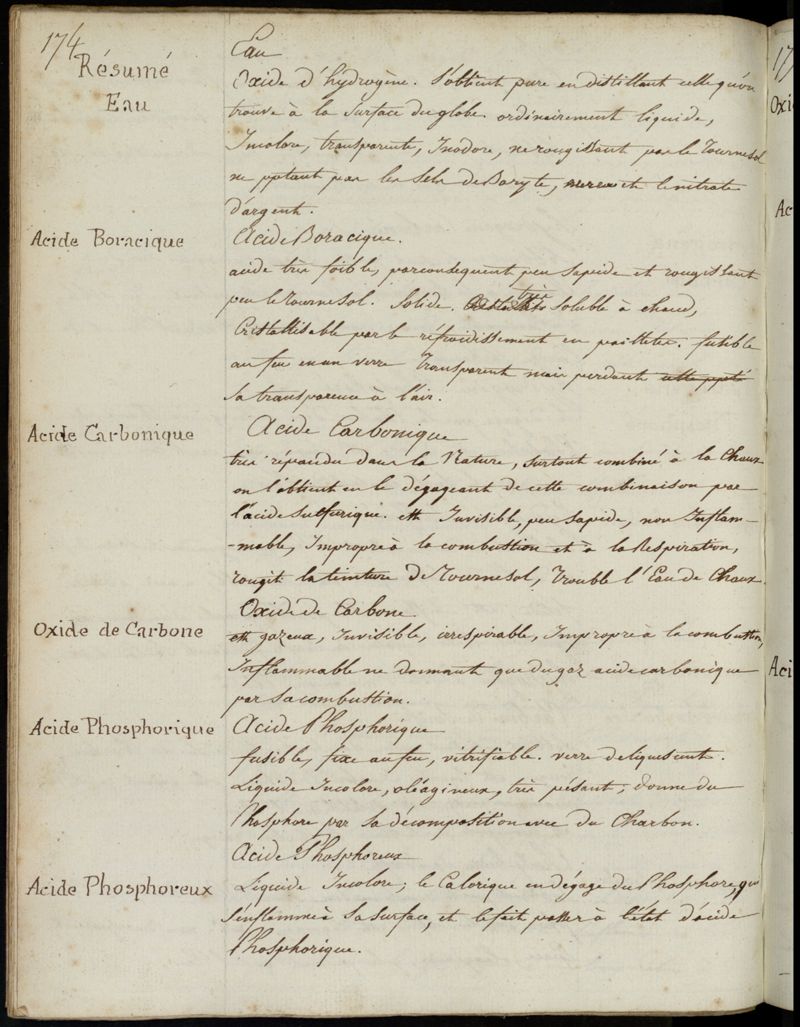 174
Résumé
Eau
Eau
Oxide d'hydrogène. S'obtient pure en distillant celle qu'on
trouve à la surface du globe. ordinairement liquide,
Incolore, transparente, Inodore, ne rougissant pas le Tournesol
ne pptant pas les Sels de Baryte, et le nitrate
d'argent.
Acide Boracique
Acide Boracique.
acide très foible, par consequent peu sapide et rougissant
peu le Tournesol. Solide. très soluble à chaud,
Cristallisable par le réfroidissement en paillettes. fusible
au feu en un verre Transparent mais perdant cette ppté
sa transparence à l'air.
Acide Carbonique
Acide Carbonique
très répandu dans la Nature, surtout combiné à la Chaux
on l'obtient en le dégageant de cette combinaison par
l'acide sulfurique. est Invisible, peu sapide, non Inflam-
-mable, Impropre à la combustion et à la Respiration,
rougit la teinture de Tournesol, Trouble l'Eau de Chaux.
Oxide de Carbone
Oxide de Carbone
est gazeux, Invisible, irrespirable, Impropre à la combustion,
Inflammable ne donnant que du gaz acide carbonique
par sa combustion.
Acide Phosphorique
Acide Phosphorique
fusible, fixe au feu, vitrifiable. verre deliquescent.
Liquide Incolore, oléagineux, très pésant, donne du
Phosphore par sa décomposition avec du Charbon.
Acide Phosphoreux
Acide Phosphoreux
Liquide Incolore; le Calorique en dégage du Phosphore, qui
s'enflamme à sa surface, et le fait passer à l'état d'acide
Phosphorique.
17
Oxi
Ac
Aci